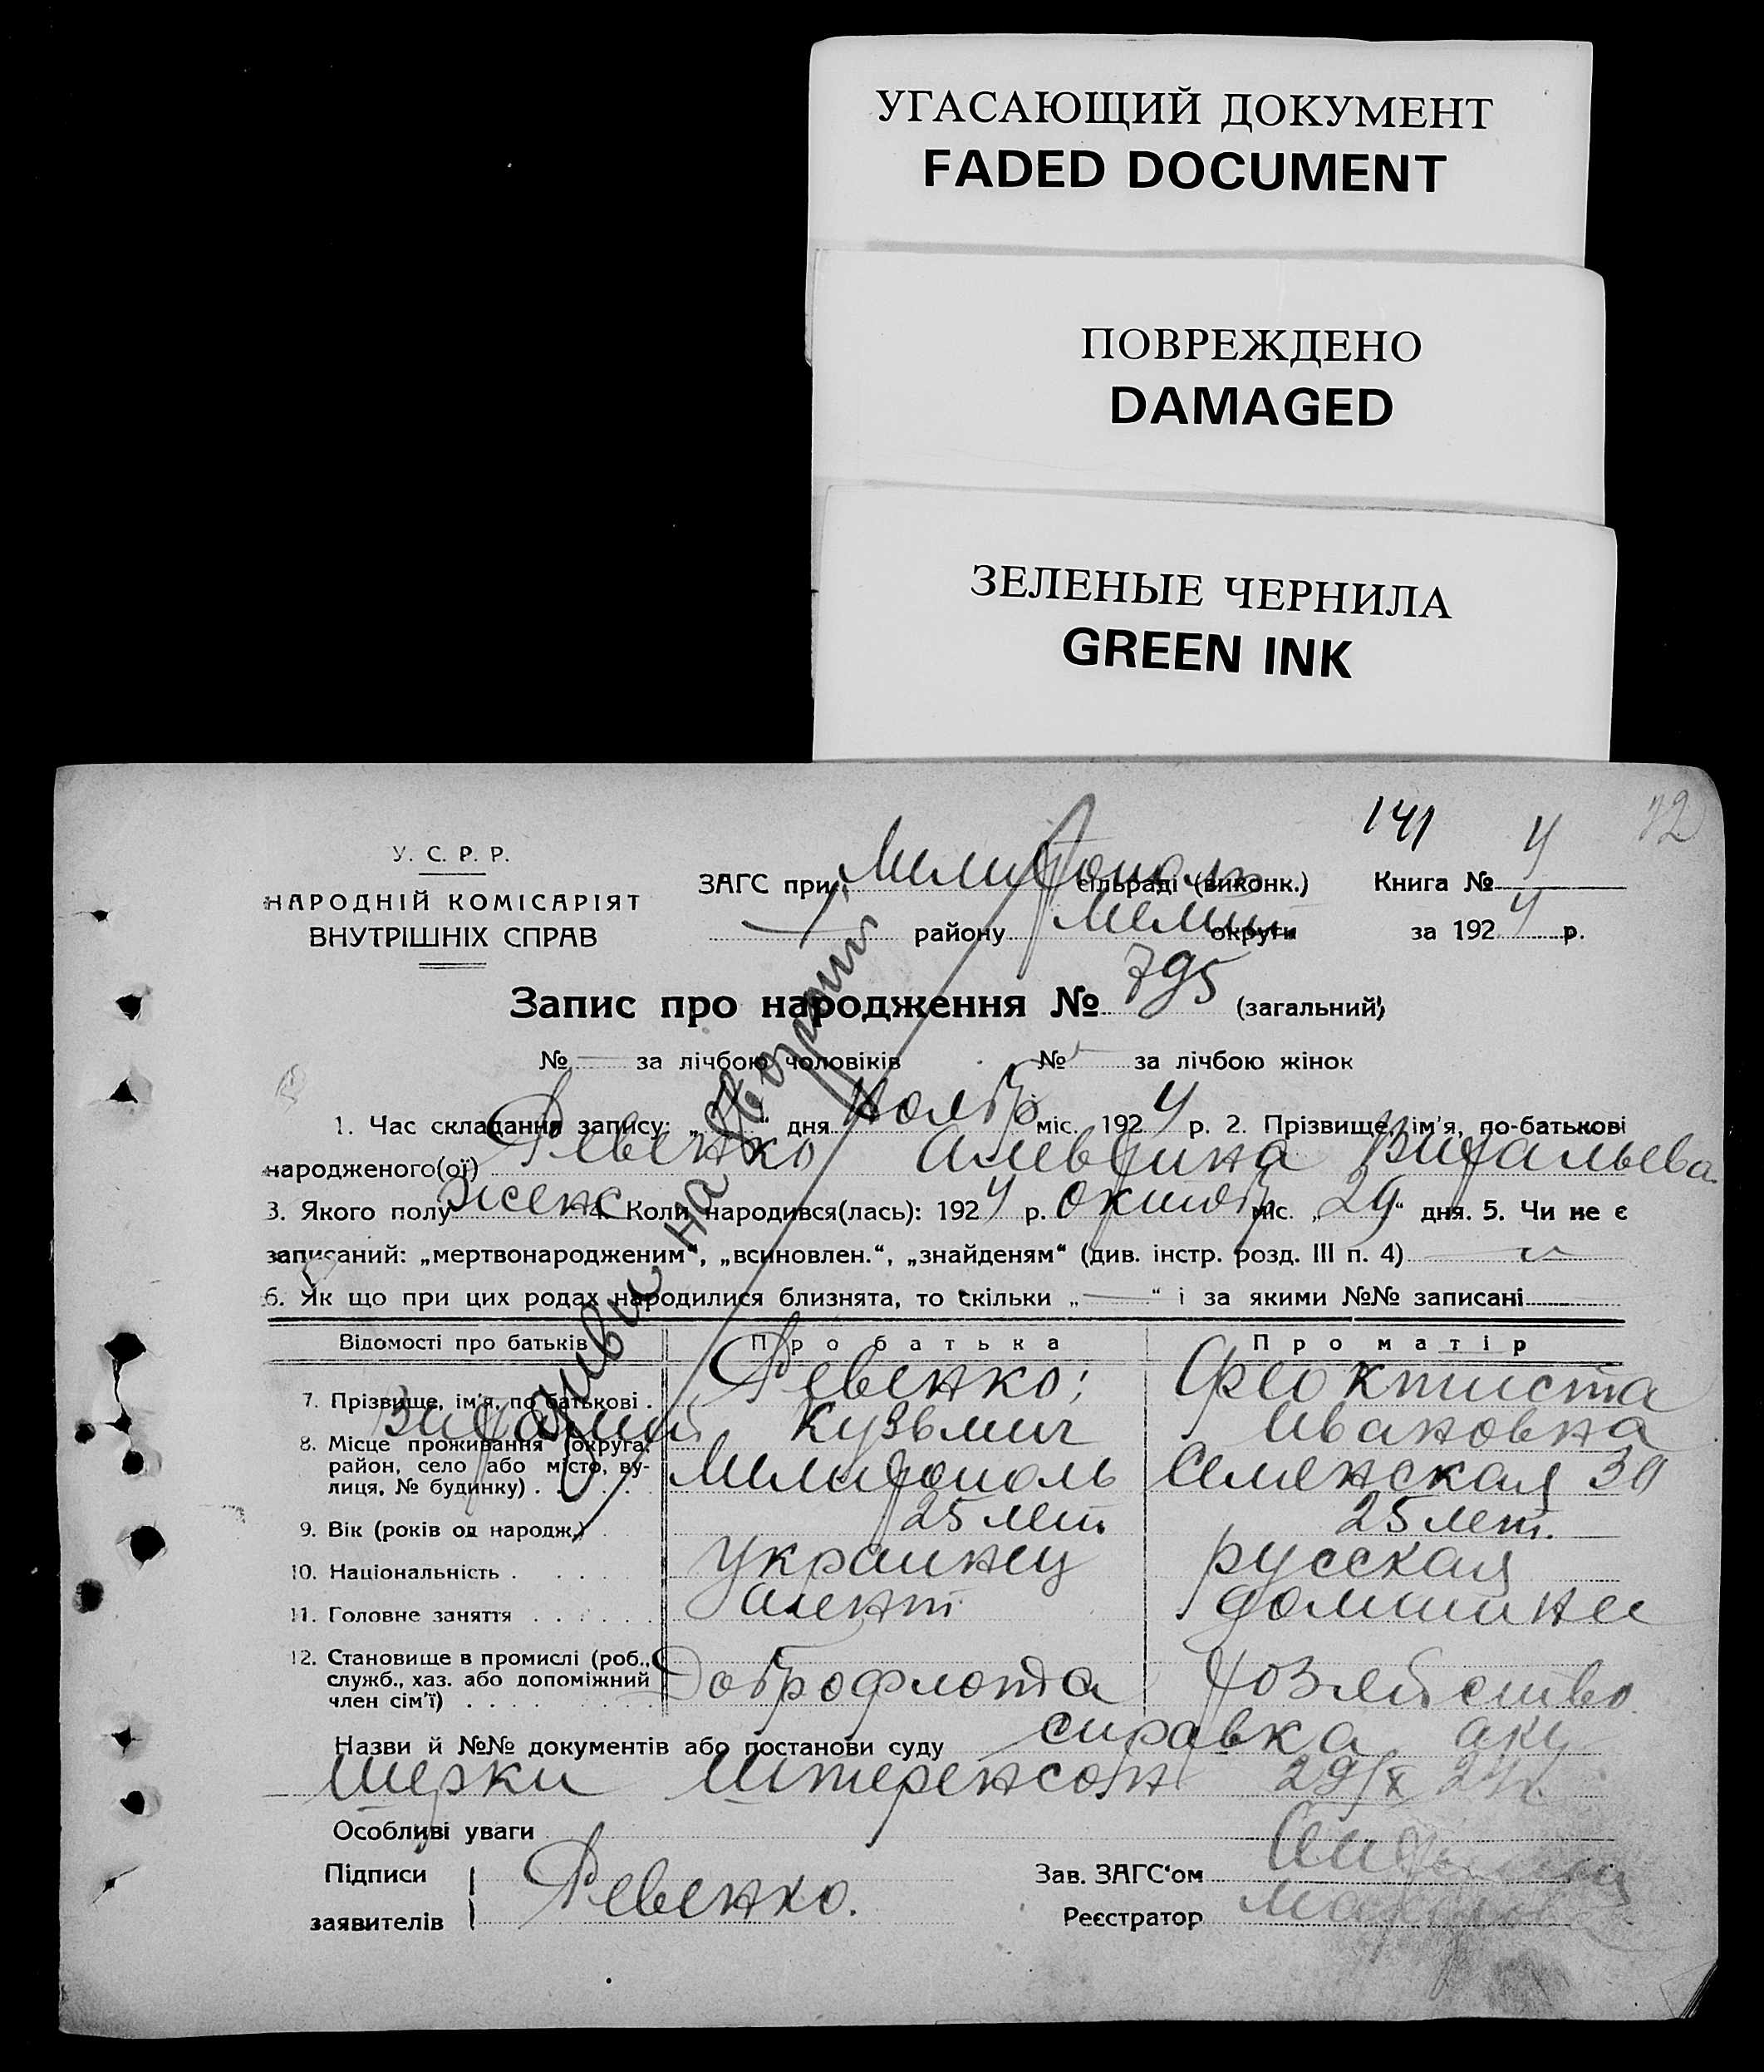 УГАСАЮЩИЙ ДОКУМЕНТ
FADED DOCUMENT
ПОВРЕЖДЕНО
DAMAGED
ЗЕЛЕНЫЕ ЧЕРНИЛА
GREEN INK
141
72
У. С. Р. Р.
НАРОДНІЙ КОМІСАРІЯТ
ВНУТРІШНІХ СПРАВ
ЗАГС при Мелитополь сільраді (виконк.) Книга № 4
району Мелит округи за 1924 р.
Запис про народження № 795 (загальний)
№ — за лічбою чоловіків № за лічбою жінок
1. Час складання запису: „ “ дня Ноябр міс. 1924 р. 2. Прізвище, ім'я, по-батькові
народженого(ої) Ревенко Алевтина Витальева
3. Якого полу женс 4. Коли народився(лась): 1924 р. Октябр міс. „29“ дня. 5. Чи не є
записаний: „мертвонародженим“, „всиновлен.“, „знайденям“ (див. інстр. розд. III п. 4)
6. Як що при цих родах народилися близнята, то скільки „—“ і за якими №№ записані
Відомості про батьків Про батька Про матір
7. Прізвище, ім'я, по батькові . Ревенко; Феоктиста
Виталий Кузьмич Ивановна
8. Місце проживання (округа,
район, село або місто, ву-
лиця, № будинку) . Мелитополь Семенская 30
9. Вік (років од народж.) . 25 лет 25 лет.
10. Національність . украинец русская
11. Головне заняття . агент домашнее
12. Становище в промислі (роб.,
служб., хаз. або допоміжний
член сім'ї) . Доброфлота хозяйство
Назви й №№ документів або постанови суду справка аку
шерки Штеренсон 29/X 24
Особливі уваги
Підписи
заявителів Ревенко.
Зав. ЗАГС'ом
Реєстратор
на